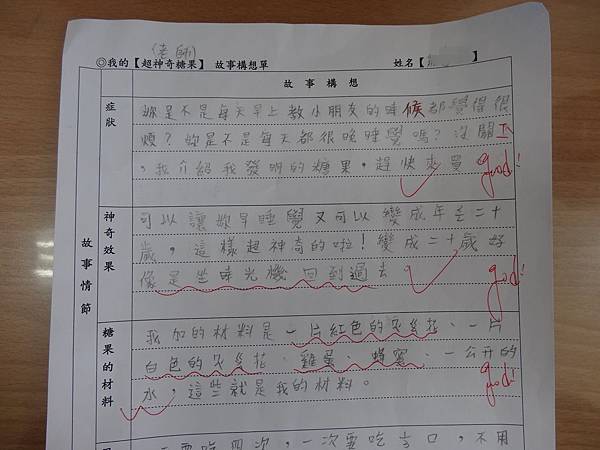 (老師)
◎我的【超神奇糖果】 故事構想單 姓名【 】
故事構想
故事情節
症狀
妳是不是每天早上教小朋友的時候都覺得很
煩?妳是不是每天都很晚睡覺嗎?沒關
,我介紹我發明的糖果,趕快來買
good!
神奇效果
可以讓妳早睡覺又可以變成年二十
歲,這樣超神奇的啦!變成二十歲好
像是坐時光機回到過去
good!
糖果的材料
我加的材料是一片紅色的ㄆㄠ花、一片
白色的ㄆㄠ花、雞蛋、蜂蜜、一公开的
水,這些就是我的材料。
good!
要吃四次,一次要吃 口,不用